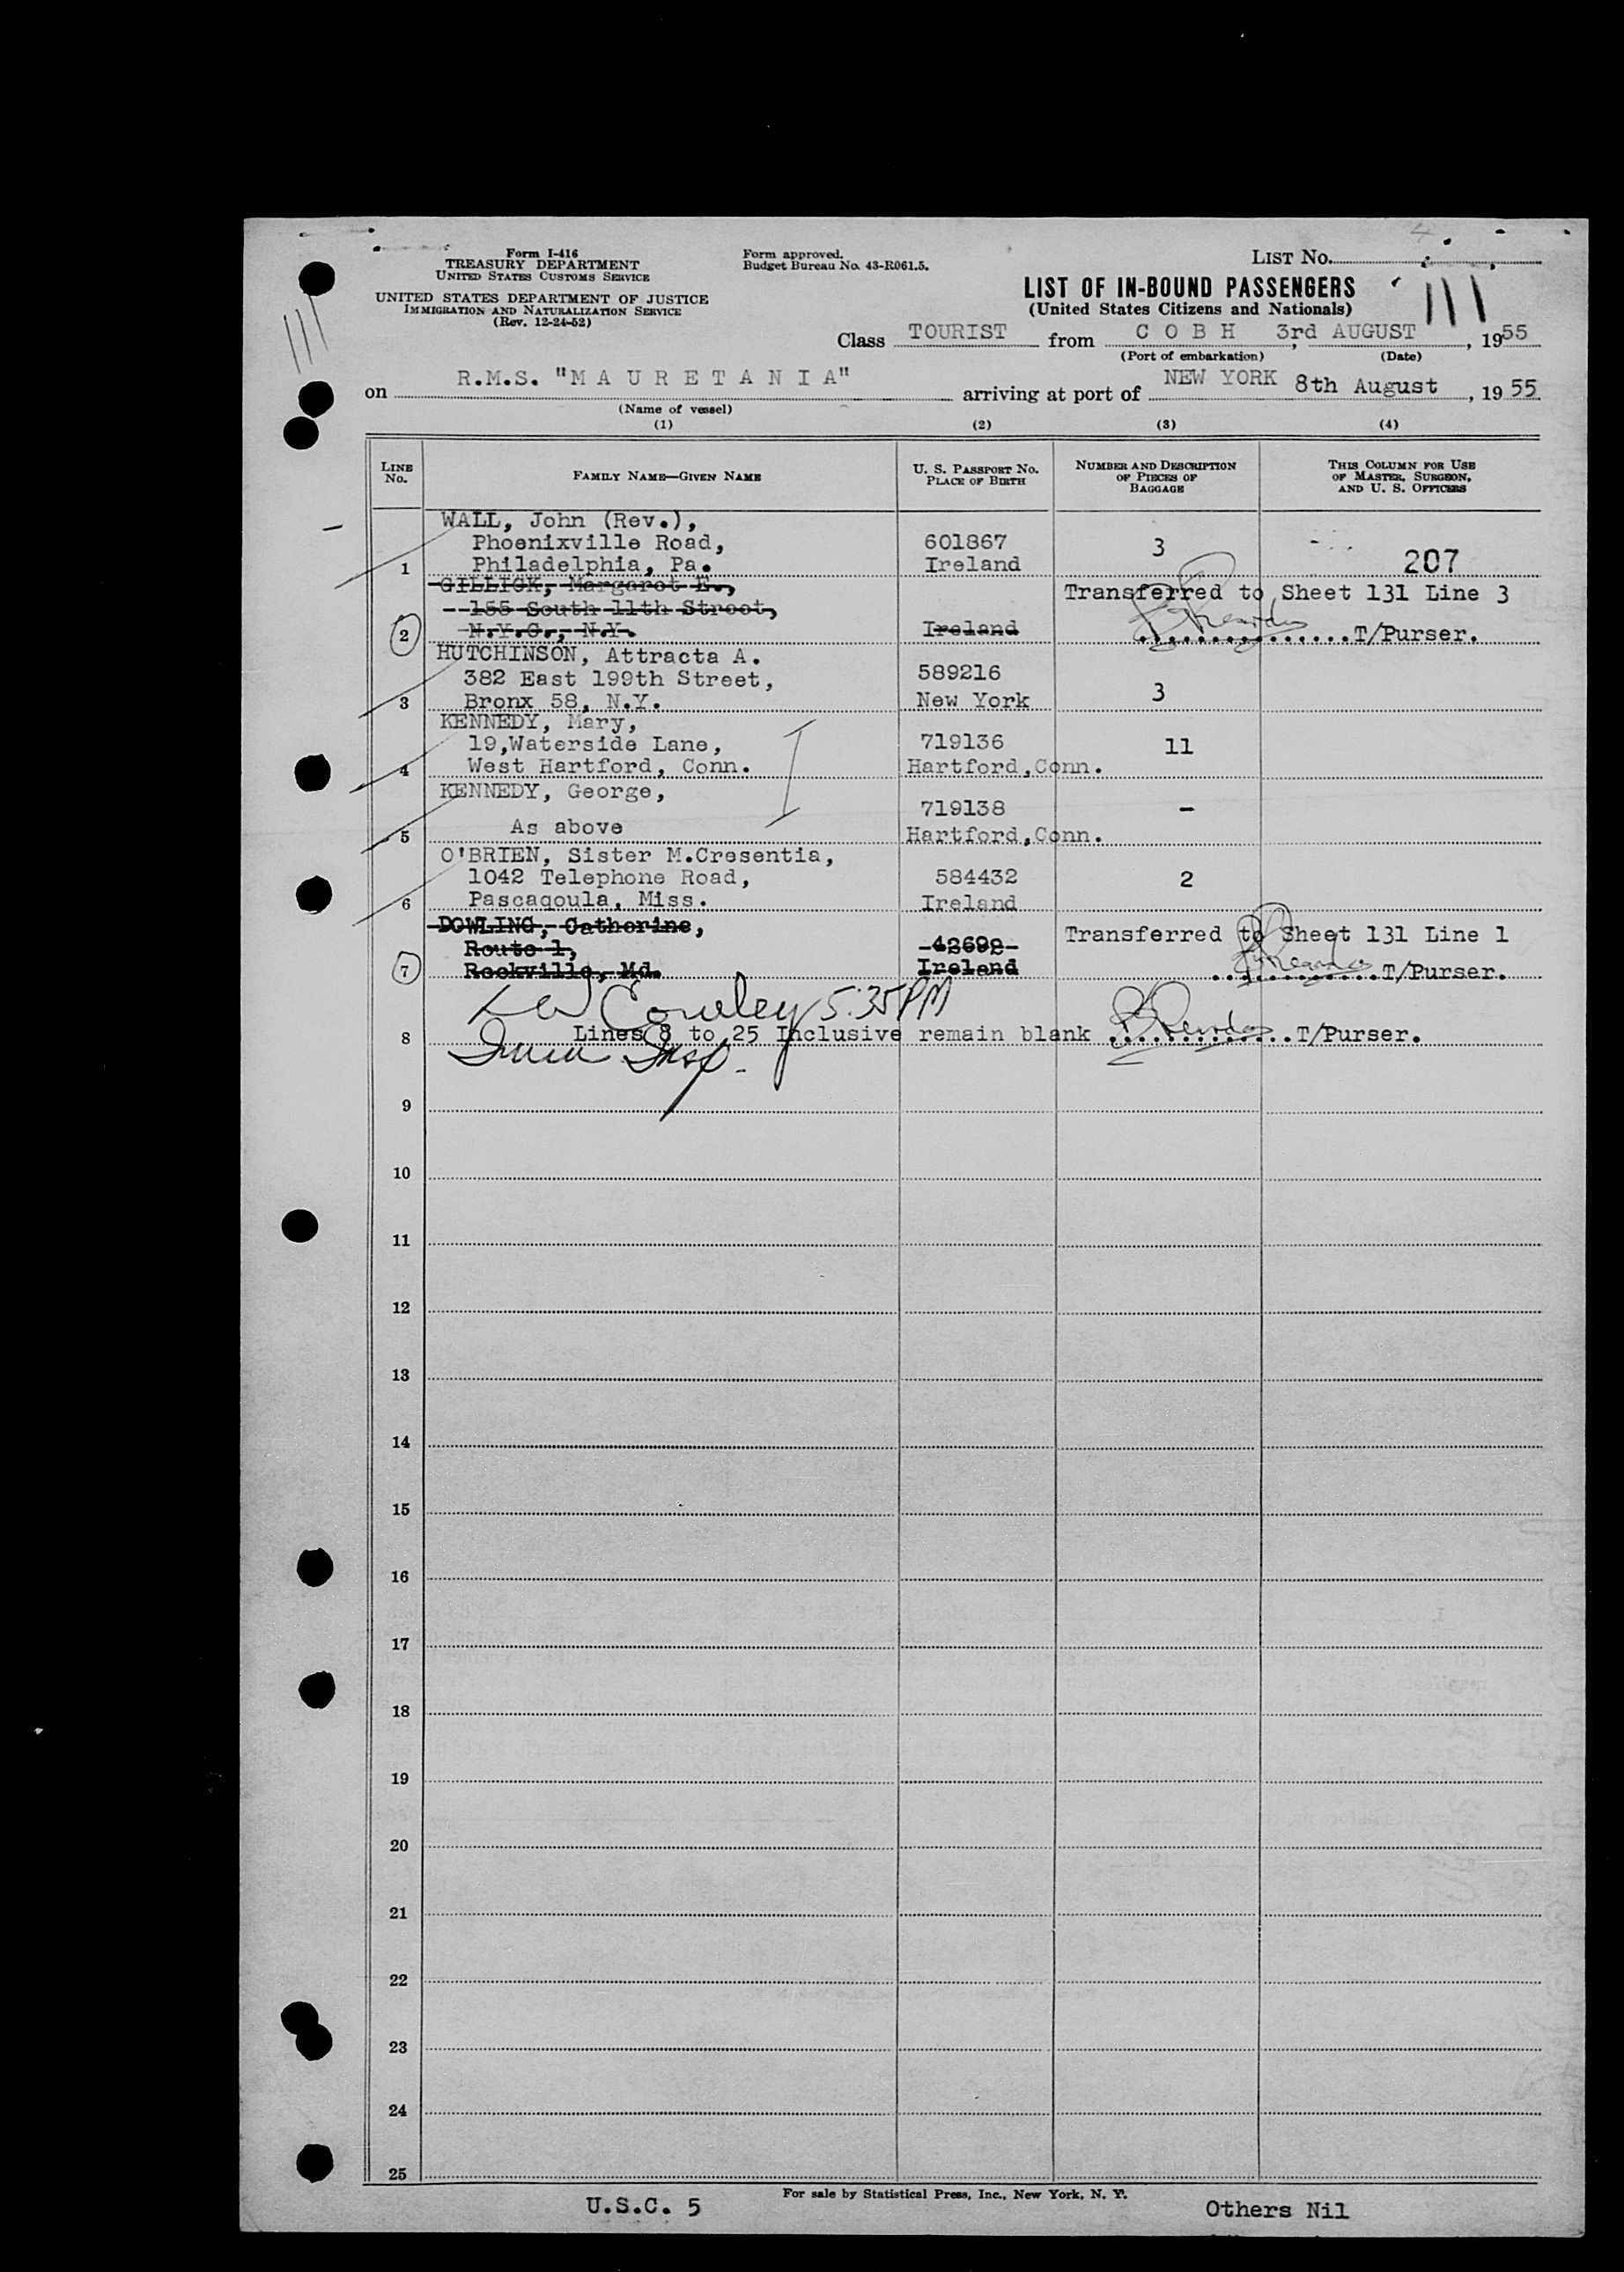 Form I-416
TREASURY DEPARTMENT
UNITED STATES CUSTOMS SERVICE
UNITED STATES DEPARTMENT OF JUSTICE
IMMIGRATION AND NATURALIZATION SERVICE
(Rev. 12-24-52)
Form approved.
Budget Bureau No. 43-R061.5.
LIST NO.
111
LIST OF IN-BOUND PASSENGERS
(United States Citizens and Nationals)
Class TOURIST from C O B H 3rd AUGUST, 1955
(Port of embarkation) (Date)
on R.M.S. "M A U R E T A N I A" arriving at port of NEW YORK 8th August, 1955
(Name of vessel)
(1) (2) (3) (4)
LINE NO.
FAMILY NAME—GIVEN NAME
U. S. PASSPORT NO.
PLACE OF BIRTH
NUMBER AND DESCRIPTION
OF PIECES OF
BAGGAGE
THIS COLUMN FOR USE
OF MASTER, SURGEON,
AND U. S. OFFICERS
WALL, John (Rev.),
Phoenixville Road, 601867 3
1 Philadelphia, Pa. Ireland 207
GILLICK, Margaret E., Transferred to Sheet 131 Line 3
155 South 11th Street,
2 N.Y.C., N.Y. Ireland T/Purser.
HUTCHINSON, Attracta A.
382 East 199th Street, 589216
3 Bronx 58, N.Y. New York 3
KENNEDY, Mary,
19,Waterside Lane, 719136 11
4 West Hartford, Conn. Hartford,Conn.
KENNEDY, George,
719138 -
5 As above Hartford,Conn.
O'BRIEN, Sister M.Cresentia,
1042 Telephone Road, 584432 2
6 Pascagoula, Miss. Ireland
DOWLING, Catherine, Transferred to Sheet 131 Line 1
Route 1,
7 Rockville, Md. Ireland T/Purser.
Cowley 5:35 PM
8 Lines 8 to 25 Inclusive remain blank T/Purser.
Imm Insp.
9
10
11
12
13
14
15
16
17
18
19
20
21
22
23
24
25
For sale by Statistical Press, Inc., New York, N. Y.
U.S.C. 5 Others Nil